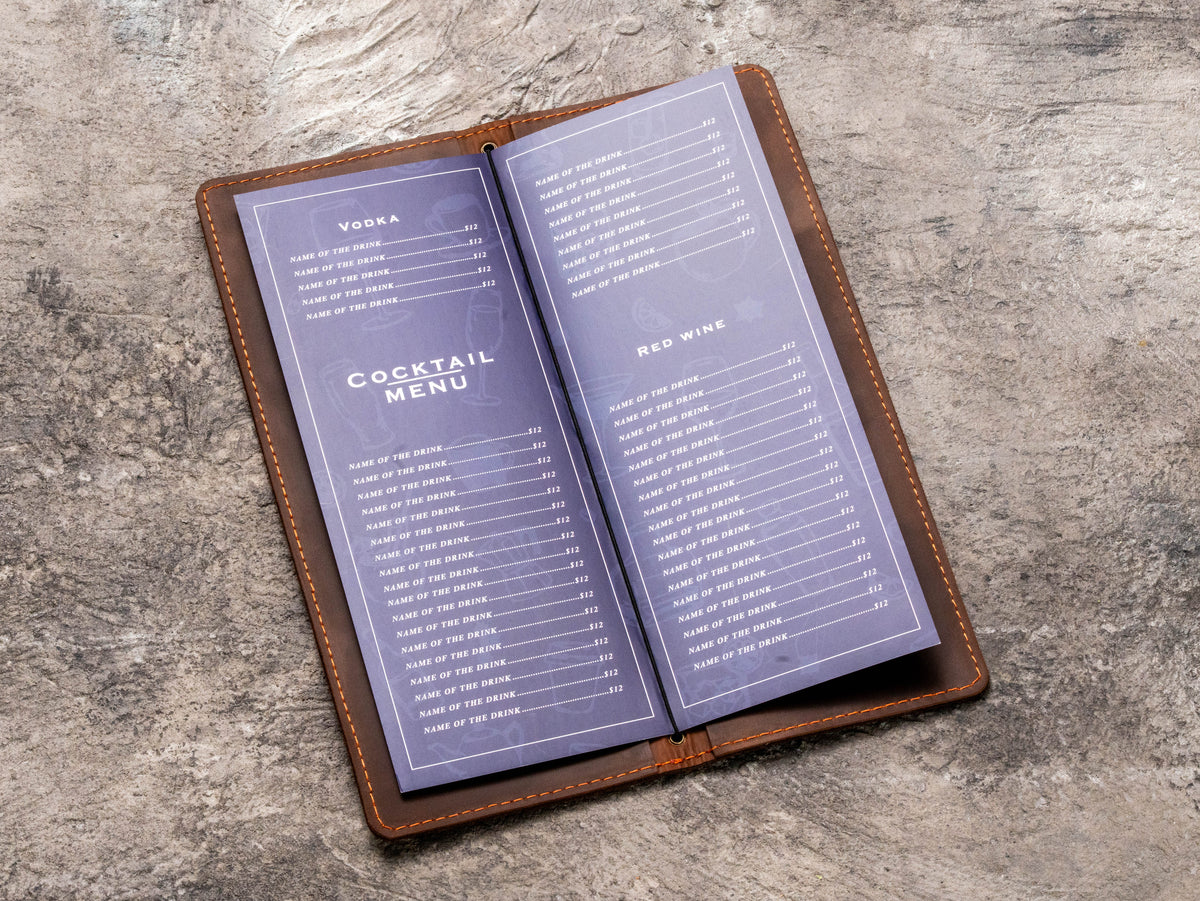 VODKA
NAME OF THE DRINK....................$12
NAME OF THE DRINK....................$12
NAME OF THE DRINK....................$12
NAME OF THE DRINK....................$12
NAME OF THE DRINK....................$12
COCKTAIL
MENU
NAME OF THE DRINK....................$12
NAME OF THE DRINK....................$12
NAME OF THE DRINK....................$12
NAME OF THE DRINK....................$12
NAME OF THE DRINK....................$12
NAME OF THE DRINK....................$12
NAME OF THE DRINK....................$12
NAME OF THE DRINK....................$12
NAME OF THE DRINK....................$12
NAME OF THE DRINK....................$12
NAME OF THE DRINK....................$12
NAME OF THE DRINK....................$12
NAME OF THE DRINK....................$12
NAME OF THE DRINK....................$12
NAME OF THE DRINK....................$12
NAME OF THE DRINK....................$12
NAME OF THE DRINK....................$12
NAME OF THE DRINK....................$12
NAME OF THE DRINK....................$12
NAME OF THE DRINK....................$12
NAME OF THE DRINK....................$12
NAME OF THE DRINK....................$12
NAME OF THE DRINK....................$12
NAME OF THE DRINK....................$12
NAME OF THE DRINK....................$12
NAME OF THE DRINK....................$12
NAME OF THE DRINK....................$12
RED WINE
NAME OF THE DRINK....................$12
NAME OF THE DRINK....................$12
NAME OF THE DRINK....................$12
NAME OF THE DRINK....................$12
NAME OF THE DRINK....................$12
NAME OF THE DRINK....................$12
NAME OF THE DRINK....................$12
NAME OF THE DRINK....................$12
NAME OF THE DRINK....................$12
NAME OF THE DRINK....................$12
NAME OF THE DRINK....................$12
NAME OF THE DRINK....................$12
NAME OF THE DRINK....................$12
NAME OF THE DRINK....................$12
NAME OF THE DRINK....................$12
NAME OF THE DRINK....................$12
NAME OF THE DRINK....................$12
NAME OF THE DRINK....................$12